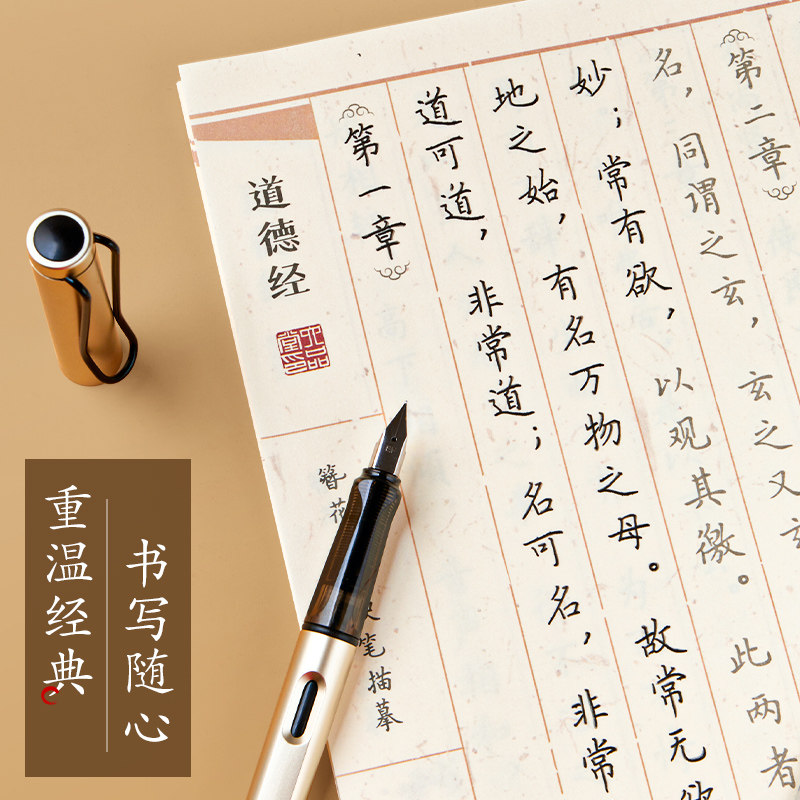 道德经
六品堂印
簪花
笔描摹
第一章
道可道，非常道；名可名，非常
地之始，有名万物之母。故常无欲
妙；常有欲，以观其徼。此两者
名，同谓之玄，玄之又玄
第二章
重温经典
书写随心